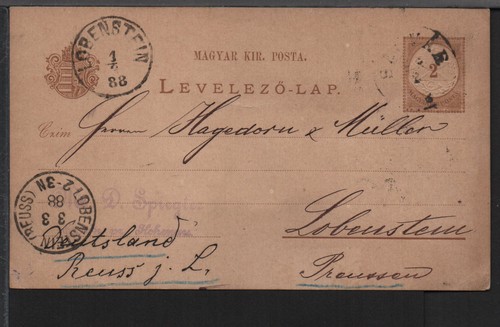 LOBENSTEIN
1
88
MAGYAR KIR. POSTA.
2
LEVELEZŐ-LAP.
Czim
Herren Hagedorn & Müller
LOBENSTEIN (REUSS)
2-3N
3 3
88
D. Spiegler
Deutsland
Lobenstein
Reuss j. L.
Preussen